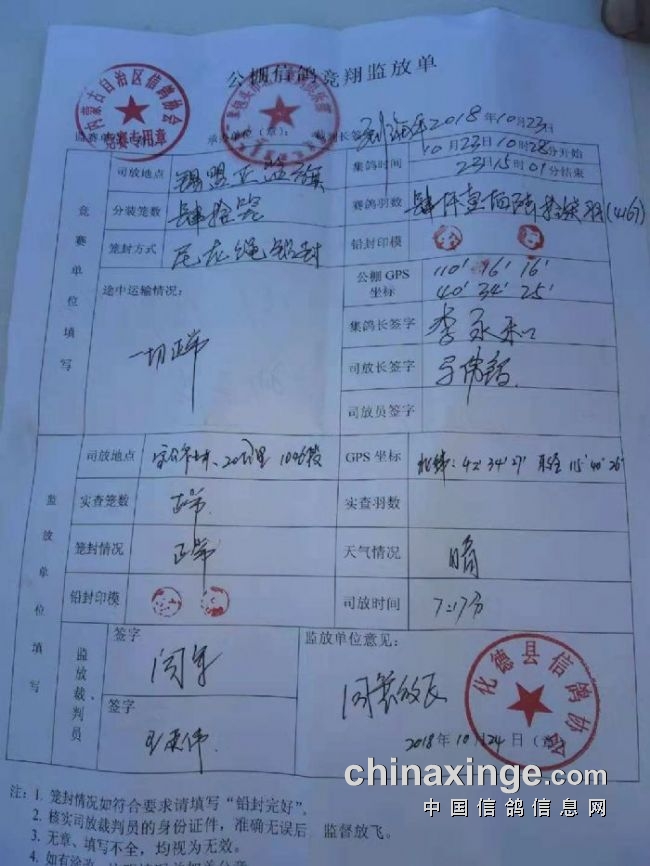 公棚信鸽竞翔监放单
内蒙古自治区信鸽协会
竞赛专用章
2018年10月23日
竞赛单位填写
司放地点 锡盟正蓝旗
集鸽时间 10月23日10时28分开始
23日15时01分结束
分装笼数 肆拾笼
赛鸽羽数 肆仟壹佰陆拾柒羽(4167)
笼封方式
铅封印模
途中运输情况:
一切正常
公棚GPS坐标 110′ 16′ 16′
40′ 34′ 25′
集鸽长签字 李永和
司放长签字
司放员签字
监放单位填写
司放地点
GPS 坐标 北纬:42′34′27′ 东经 115′40′26′
实查笼数 正常
实查羽数
笼封情况 正常
天气情况 晴
铅封印模
司放时间 7:17分
监放裁判员
签字
闫军
签字
监放单位意见:
同意放飞
化德县信鸽协会
2018年10月24日(章)
注:1. 笼封情况如符合要求请填写“铅封完好”。
2. 核实司放裁判员的身份证件,准确无误后,监督放飞。
3. 无章、填写不全,均视为无效。
4. 如有涂改
chinaxinge.com
中国信鸽信息网